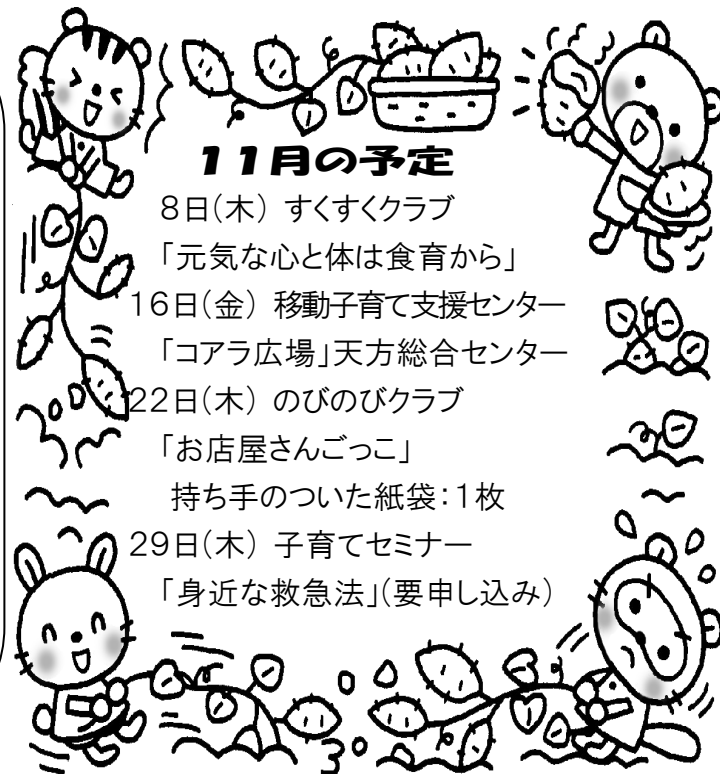 11月の予定
8日(木) すくすくクラブ
「元気な心と体は食育から」
16日(金) 移動子育て支援センター
「コアラ広場」天方総合センター
22日(木) のびのびクラブ
「お店屋さんごっこ」
持ち手のついた紙袋：1枚
29日(木) 子育てセミナー
「身近な救急法」(要申し込み)